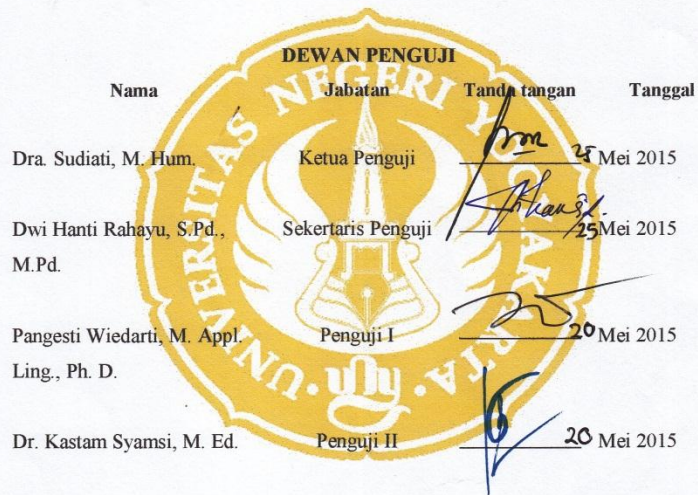 DEWAN PENGUJI
Nama Jabatan Tanda tangan Tanggal
Dra. Sudiati, M. Hum. Ketua Penguji 25 Mei 2015
Dwi Hanti Rahayu, S.Pd., Sekertaris Penguji 25 Mei 2015
M.Pd.
Pangesti Wiedarti, M. Appl. Penguji I 20 Mei 2015
Ling., Ph. D.
Dr. Kastam Syamsi, M. Ed. Penguji II 20 Mei 2015
UNIVERSITAS NEGERI YOGYAKARTA
uny